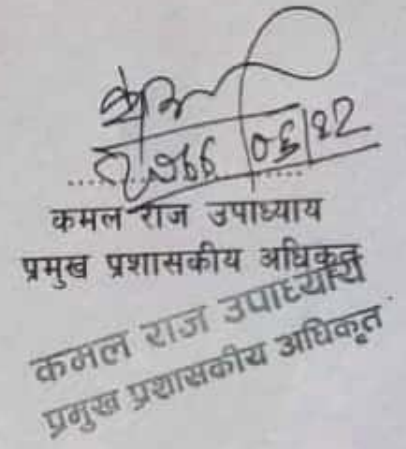 कमल राज उपाध्याय
प्रमुख प्रशासकीय अधिकृत
कमल राज उपाध्याय
प्रमुख प्रशासकीय अधिकृत